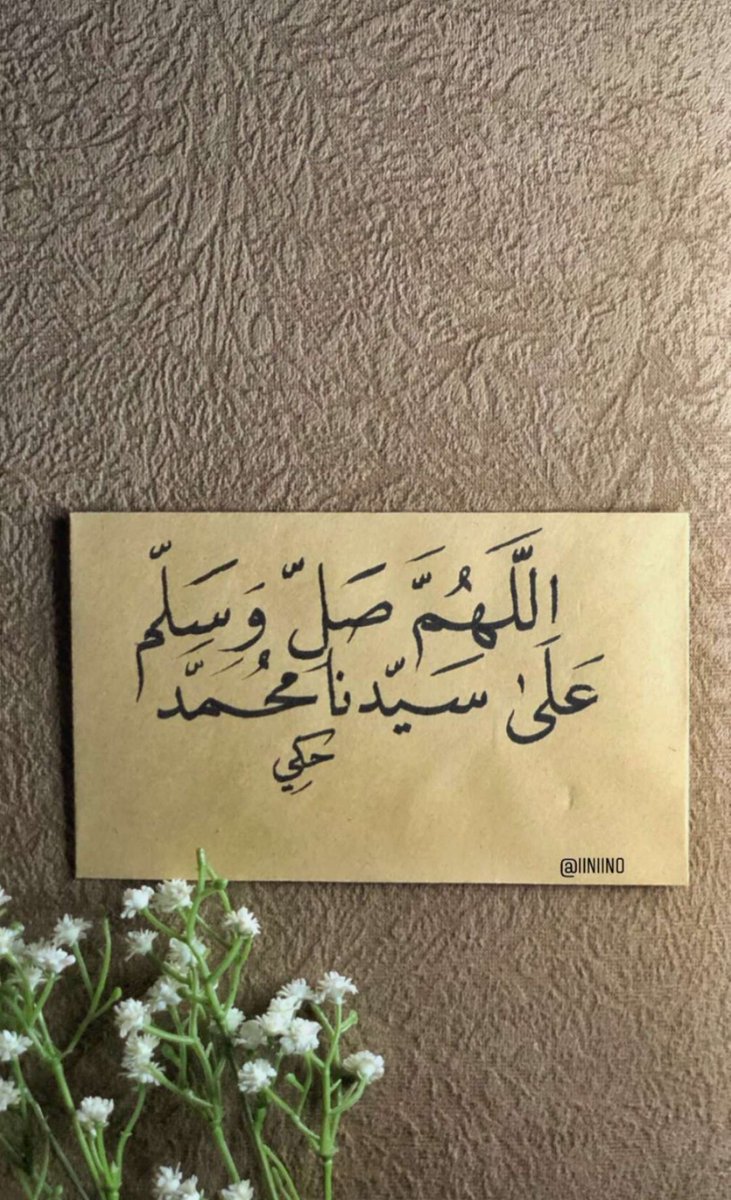 اللَّهُمَّ صَلِّ وَسَلِّم
عَلَىٰ سَيّدنا محُمَّد
حَكِي
@IINIINO